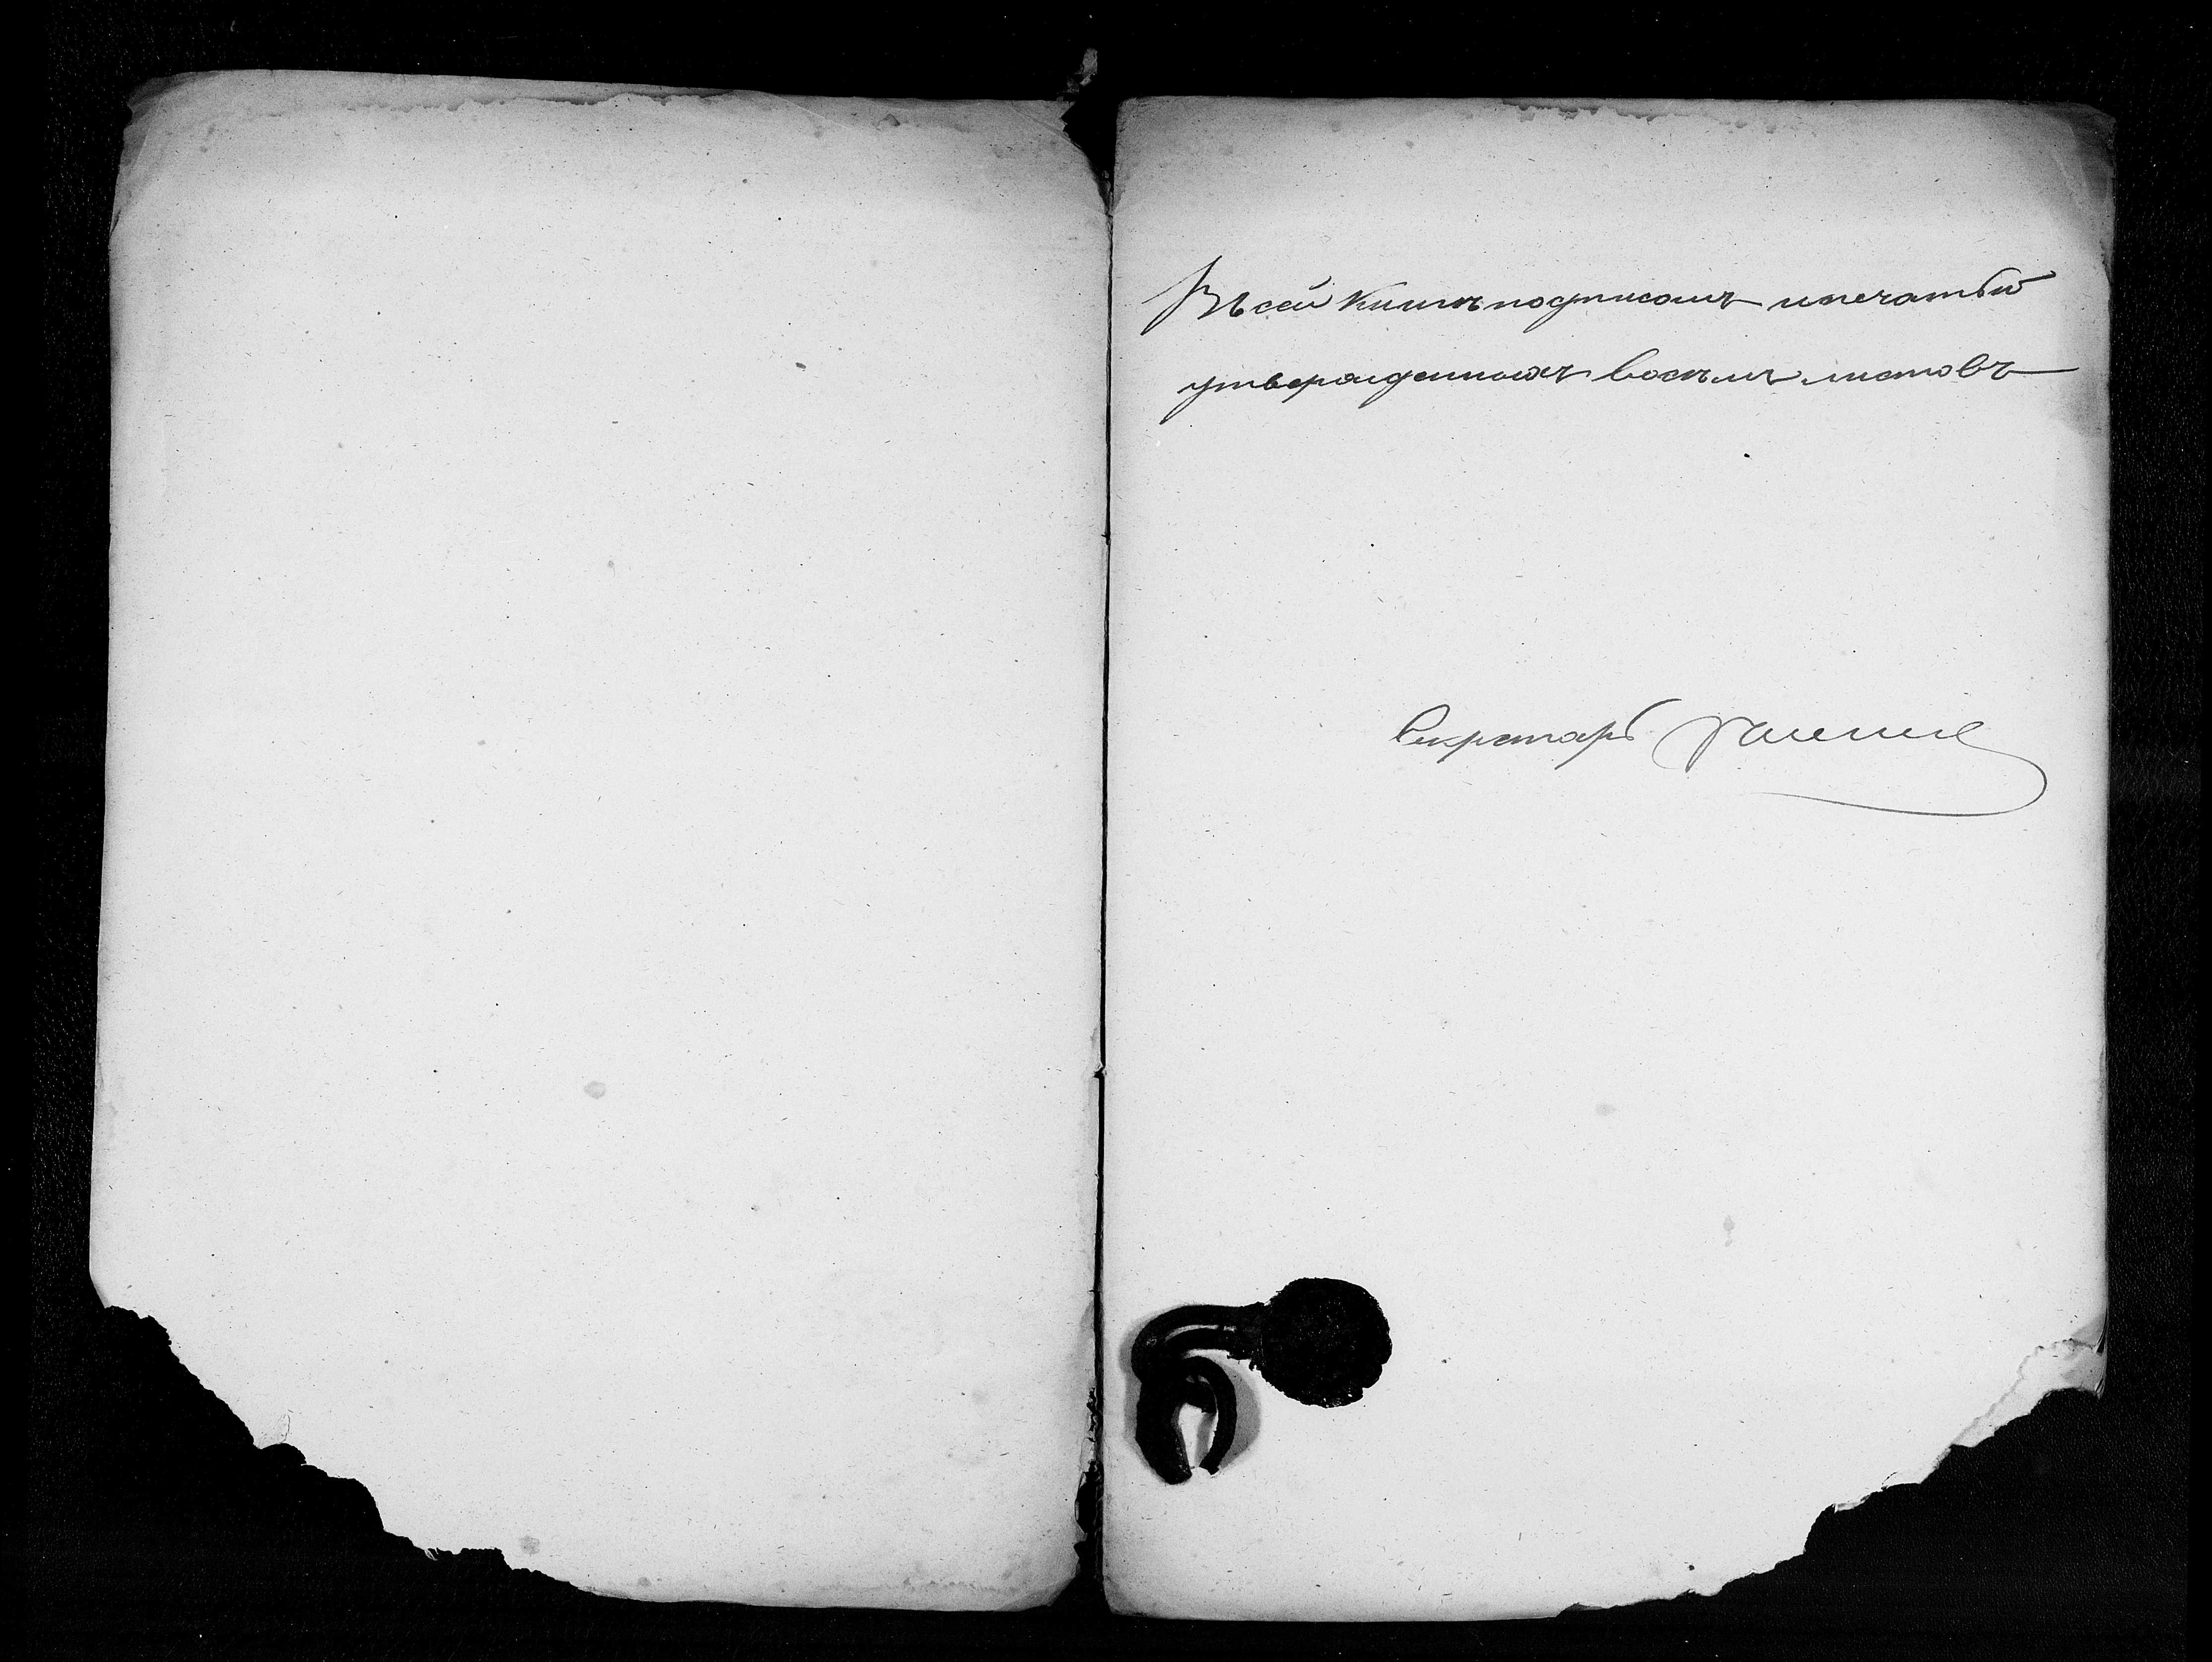 Въ сей книгѣ подписомъ и печатью
утвержденныхъ восемь листовъ
Секретарь